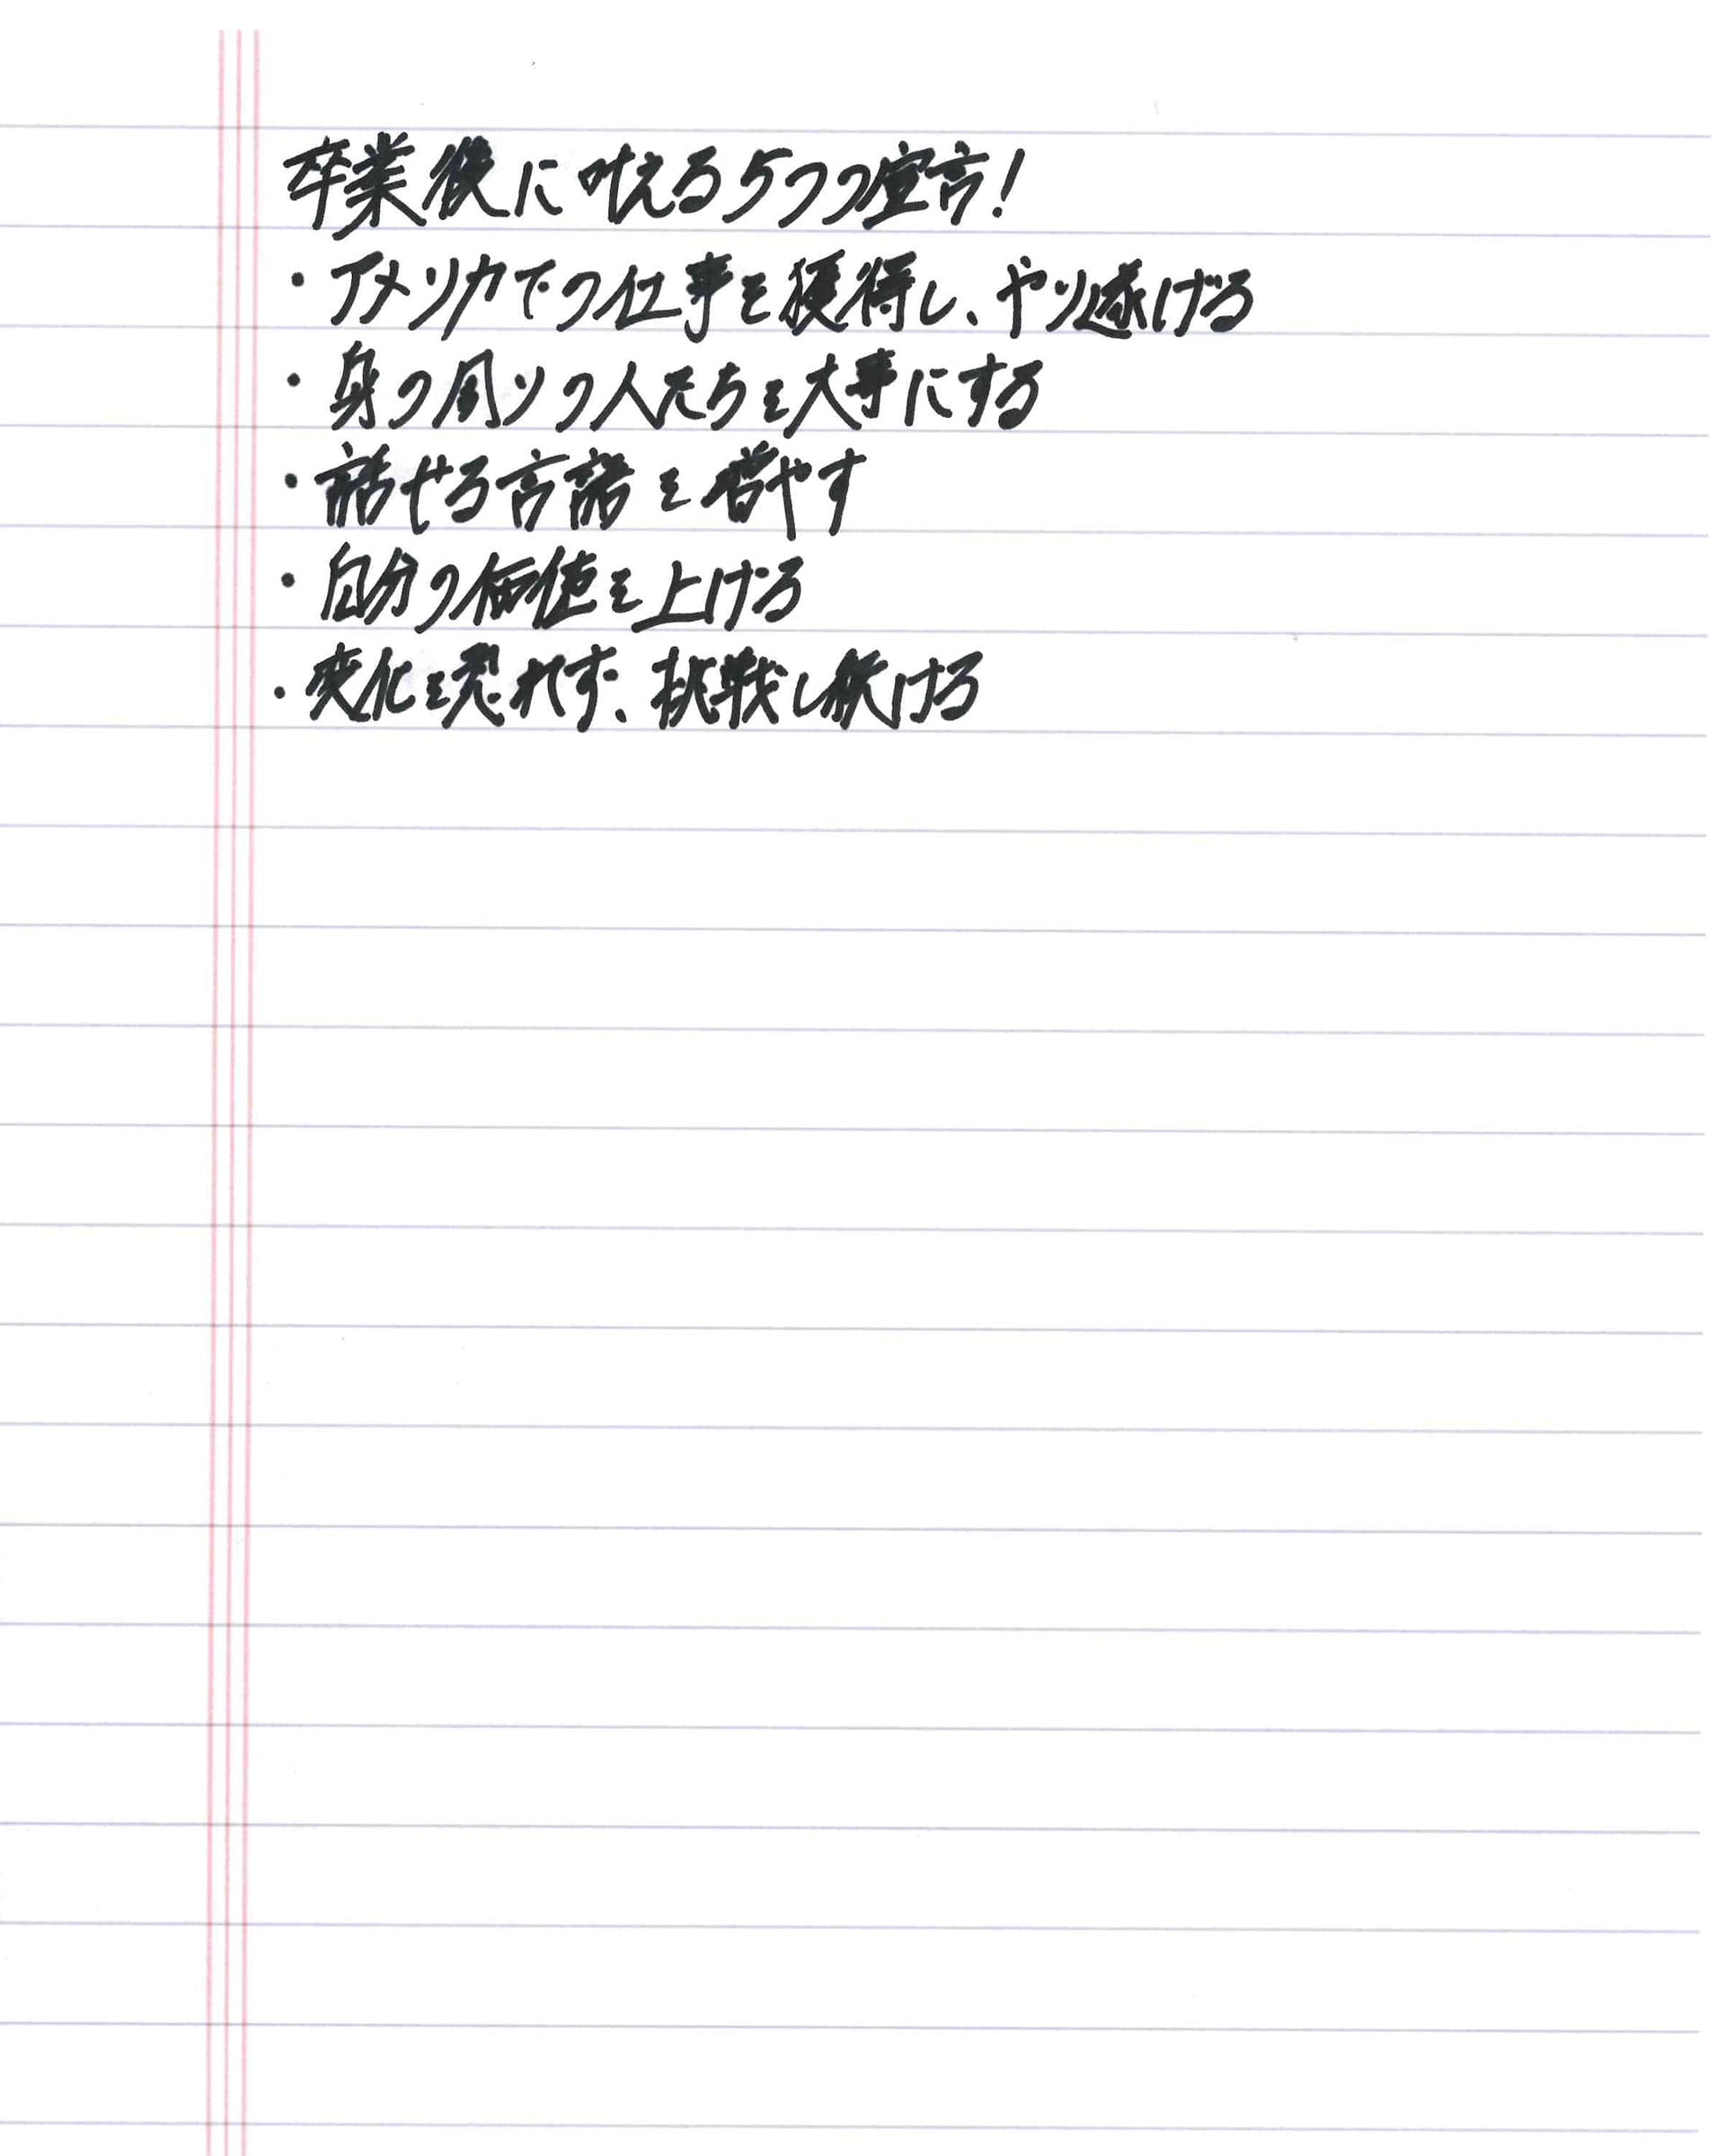 卒業後に叶える5つの宣言!
・アメリカでの仕事を獲得し、やり遂げる
・身の周りの人たちを大事にする
・話せる言語を増やす
・自分の価値を上げる
・変化を恐れず、挑戦し続ける